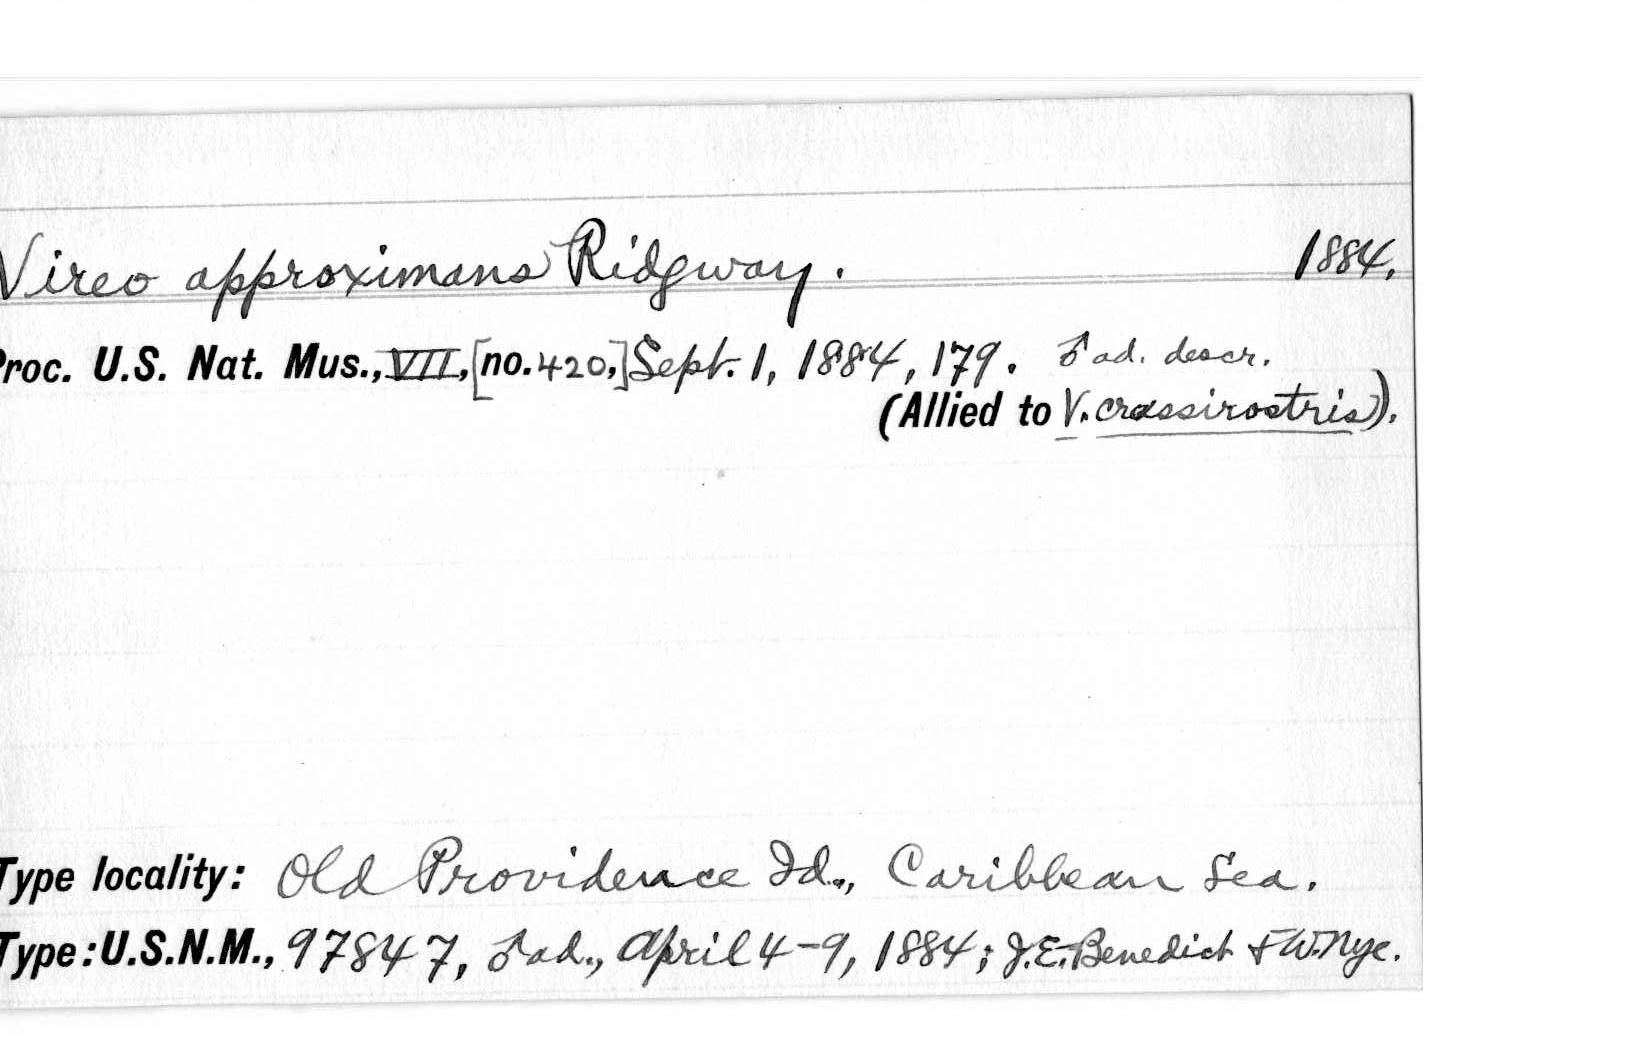 Vireo approximans Ridgway. 1884.
Proc. U.S. Nat. Mus., VII, [no. 420,] Sept. 1, 1884, 179. ♂ ad. descr.
(Allied to V. crassirostris).
Type locality: Old Providence Id., Caribbean Sea.
Type: U.S.N.M., 97847, ♂ ad., April 4-9, 1884; J.E. Benedict & W. Nye.